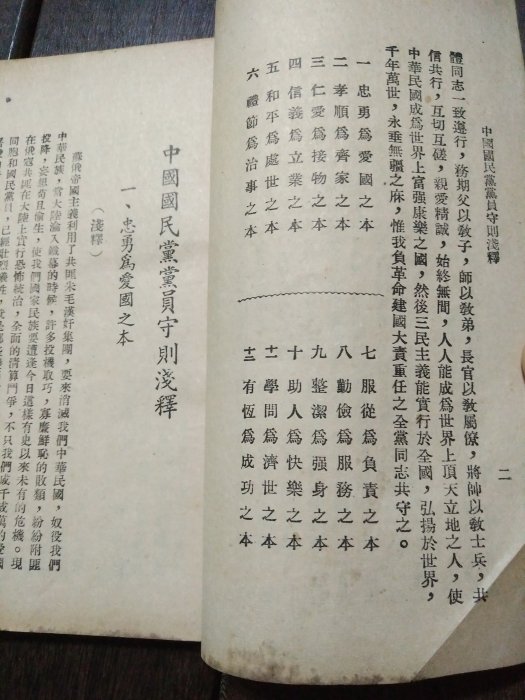 中國國民黨黨員守則淺釋
二
體同志一致遵行，務期父以敎子，師以敎弟，長官以敎屬僚，將帥以敎士兵，共
信共行，互切互磋，親愛精誠，始終無間，人人能成爲世界上頂天立地之人，使
中華民國成爲世界上富强康樂之國，然後三民主義能實行於全國，弘揚於世界，
千年萬世，永垂無疆之庥，惟我負革命建國大責重任之全黨同志共守之。
一 忠勇爲愛國之本
二 孝順爲齊家之本
三 仁愛爲接物之本
四 信義爲立業之本
五 和平爲處世之本
六 禮節爲治事之本
七 服從爲負責之本
八 勤儉爲服務之本
九 整潔爲强身之本
十 助人爲快樂之本
十一 學問爲濟世之本
十二 有恆爲成功之本
中國國民黨黨員守則淺釋
一、忠勇爲愛國之本
（淺釋）
蘇俄帝國主義利用了共匪朱毛漢奸集團，要來消滅我們中華民國，奴役我們
中華民族，當大陸淪入鐵幕的時候，許多投機取巧，寡廉鮮恥的敗類，紛紛附匪
投降，妄想苟且偷生，使我們國家民族要遭逢今日這樣有史以來未有的危機。現
在俄寇共匪在大陸上實行恐怖統治，全面的清算鬥爭，不只我們成千成萬的愛國
同胞和國民黨員，已經壯烈犧牲，